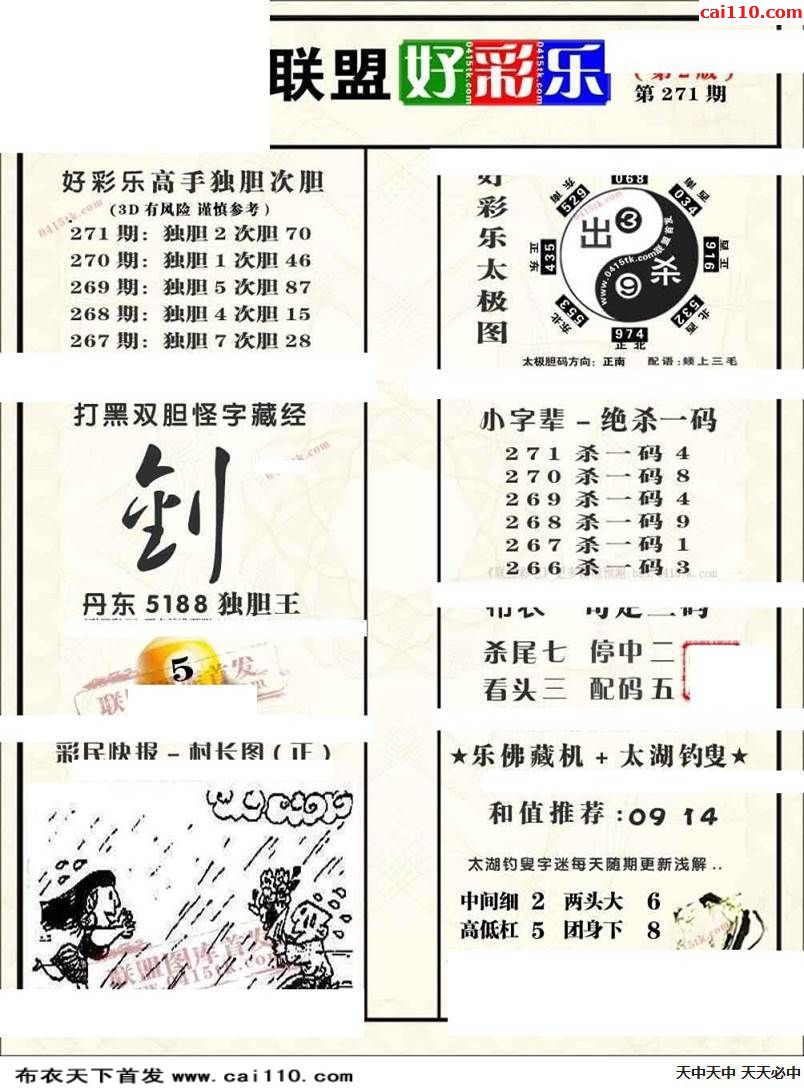 cai110.com
联盟 好彩乐
(第2版)
第 271 期
好彩乐高手独胆次胆
(3D有风险 谨慎参考)
271 期: 独胆 2 次胆 70
270 期: 独胆 1 次胆 46
269 期: 独胆 5 次胆 87
268 期: 独胆 4 次胆 15
267 期: 独胆 7 次胆 28
好彩乐太极图
068
东南 529
西南 034
正东 435
正西 916
东北 553
西北 532
974
正北
出 3
9 杀
www.0415tk.com联盟首发
太极胆码方向: 正南 配语: 颊上三毛
打黑双胆怪字藏经
丹东 5188 独胆王
5
小字辈 - 绝杀一码
271 杀一码 4
270 杀一码 8
269 杀一码 4
268 杀一码 9
267 杀一码 1
266 杀一码 3
杀尾七 停中二
看头三 配码五
彩民快报 - 村长图 (正)
联盟图库首发
www.0415tk.com
★乐佛藏机 + 太湖钓叟★
和值推荐 :09 14
太湖钓叟字迷每天随期更新浅解 ..
中间细 2 两头大 6
高低杠 5 团身下 8
布衣天下首发 www.cai110.com
天中天中 天天必中